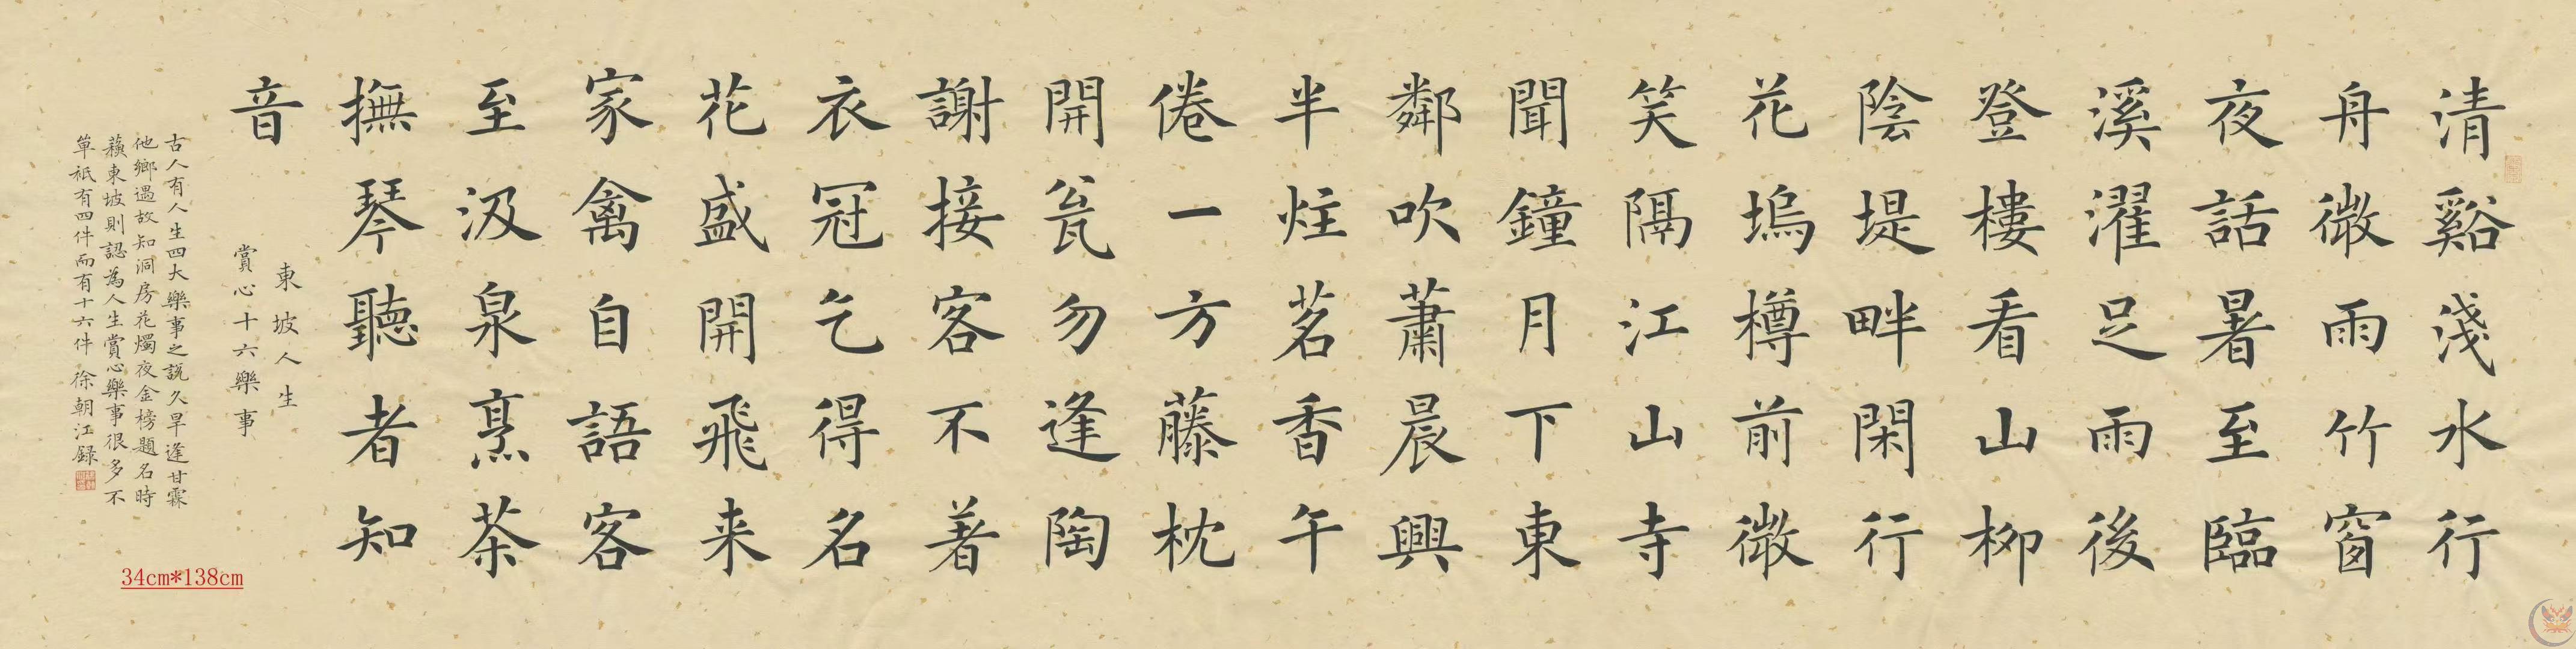 清谿淺水行
舟微雨竹窗
夜話暑至臨
溪濯足雨後
登樓看山柳
陰堤畔閑行
花塢樽前微
笑隔江山寺
聞鐘月下東
鄰吹蕭晨興
半炷茗香午
倦一方藤枕
開瓮勿逢陶
謝接客不著
衣冠乞得名
花盛開飛来
家禽自語客
至汲泉烹茶
撫琴聽者知
音
東坡人生
賞心十六樂事
古人有人生四大樂事之説久旱逢甘霖
他鄉遇故知洞房花燭夜金榜題名時
蘇東坡則認為人生賞心樂事很多不
單衹有四件而有十六件 徐朝江録
34cm*138cm